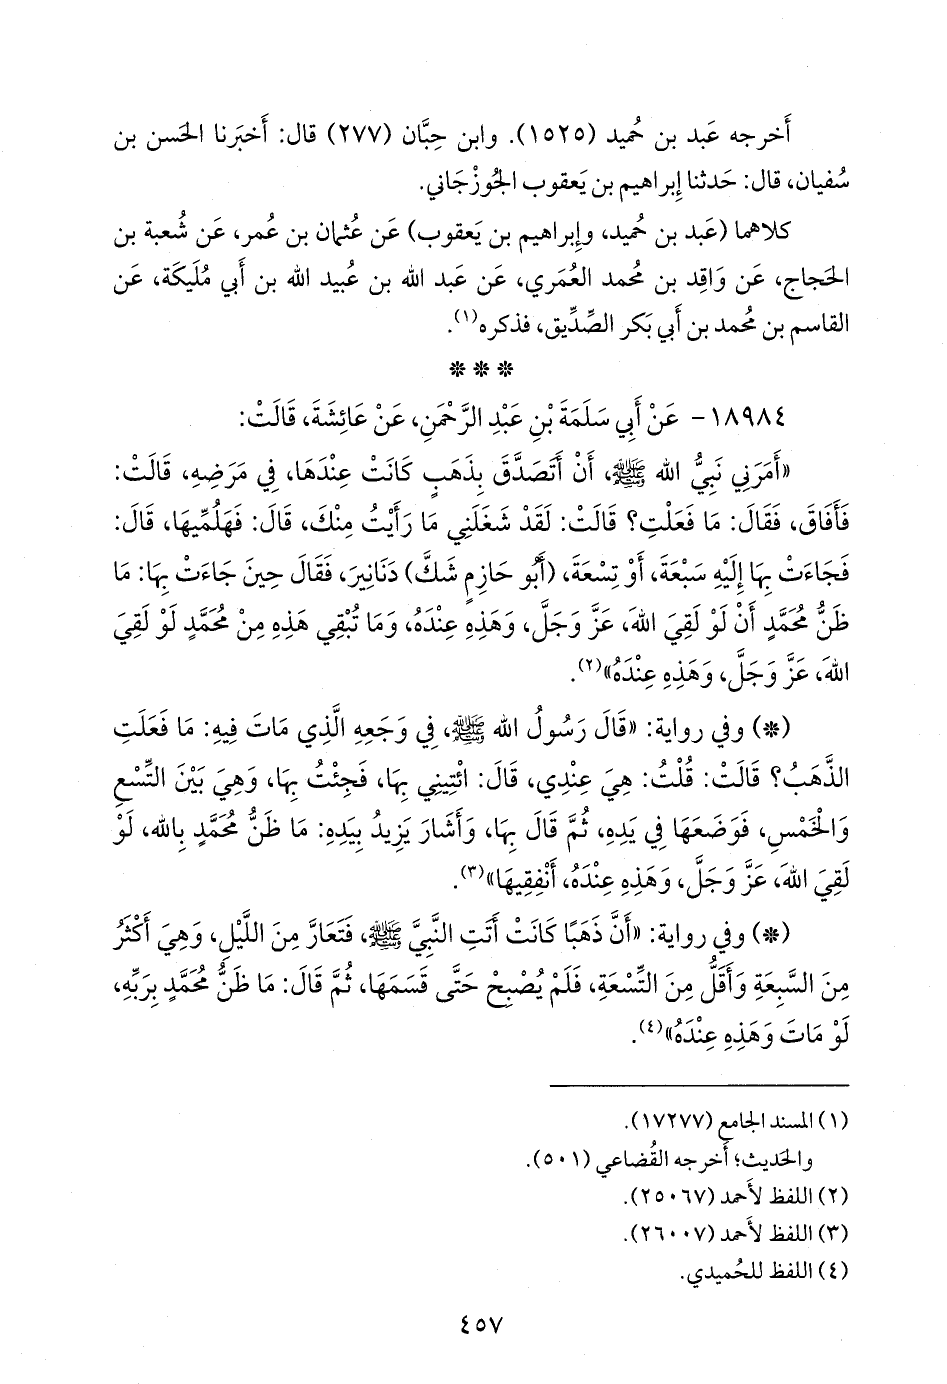 أَخرجه عَبد بن حُميد (١٥٢٥). وابن حِبَّان (٢٧٧) قال: أَخبَرنا الحَسن بن
سُفيان، قال: حَدثنا إِبراهيم بن يَعقوب الجُوزْجَاني.
كلاهما (عَبد بن حُميد، وإِبراهيم بن يَعقوب) عَن عُثمان بن عُمر، عَن شُعبة بن
الحَجاج، عَن وَاقِد بن مُحمد العُمَري، عَن عَبد الله بن عُبيد الله بن أَبي مُليكَة، عَن
القاسم بن مُحمد بن أَبي بَكر الصِّدِّيق، فذكره(١).
* * *
١٨٩٨٤- عَنْ أَبِي سَلَمَةَ بْنِ عَبْدِ الرَّحْمَنِ، عَنْ عَائِشَةَ، قَالَتْ:
«أَمَرَنِي نَبِيُّ الله ﷺ، أَنْ أَتَصَدَّقَ بِذَهَبٍ كَانَتْ عِنْدَهَا، فِي مَرَضِهِ، قَالَتْ:
فَأَفَاقَ، فَقَالَ: مَا فَعَلْتِ؟ قَالَتْ: لَقَدْ شَغَلَنِي مَا رَأَيْتُ مِنْكَ، قَالَ: فَهَلُمِّيهَا، قَالَ:
فَجَاءَتْ بِهَا إِلَيْهِ سَبْعَةَ، أَوْ تِسْعَةَ، (أَبُو حَازِمٍ شَكَّ) دَنَانِيرَ، فَقَالَ حِينَ جَاءَتْ بِهَا: مَا
ظَنُّ مُحَمَّدٍ أَنْ لَوْ لَقِيَ اللهَ، عَزَّ وَجَلَّ، وَهَذِهِ عِنْدَهُ، وَمَا تُبْقِي هَذِهِ مِنْ مُحَمَّدٍ لَوْ لَقِيَ
اللهَ، عَزَّ وَجَلَّ، وَهَذِهِ عِنْدَهُ»(٢).
(*) وفي رواية: «قَالَ رَسُولُ الله ﷺ، فِي وَجَعِهِ الَّذِي مَاتَ فِيهِ: مَا فَعَلَتِ
الذَّهَبُ؟ قَالَتْ: قُلْتُ: هِيَ عِنْدِي، قَالَ: ائْتِينِي بِهَا، فَجِئْتُ بِهَا، وَهِيَ بَيْنَ التِّسْعِ
وَالْخَمْسِ، فَوَضَعَهَا فِي يَدِهِ، ثُمَّ قَالَ بِهَا، وَأَشَارَ يَزِيدُ بِيَدِهِ: مَا ظَنُّ مُحَمَّدٍ بِالله، لَوْ
لَقِيَ اللهَ، عَزَّ وَجَلَّ، وَهَذِهِ عِنْدَهُ، أَنْفِقِيهَا»(٣).
(*) وفي رواية: «أَنَّ ذَهَبًا كَانَتْ أَتَتِ النَّبِيَّ ﷺ، فَتَعَارَّ مِنَ اللَّيْلِ، وَهِيَ أَكْثَرُ
مِنَ السَّبعَةِ وَأَقَلُّ مِنَ التِّسْعَةِ، فَلَمْ يُصْبِحْ حَتَّى قَسَمَهَا، ثُمَّ قَالَ: مَا ظَنُّ مُحَمَّدٍ بِرَبِّهِ،
لَوْ مَاتَ وَهَذِهِ عِنْدَهُ»(٤).
(١) المسند الجامع (١٧٢٧٧).
والحَديث؛ أَخرجه القُضاعي (٥٠١).
(٢) اللفظ لأَحمد (٢٥٠٦٧).
(٣) اللفظ لأَحمد (٢٦٠٠٧).
(٤) اللفظ للحُميدي.
٤٥٧